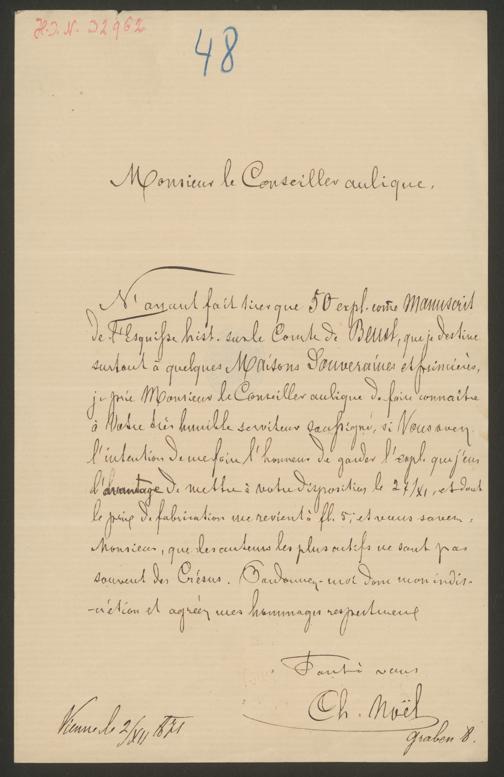 H.I.N. 32962
48
Monsieur le Conseiller aulique.
N'ayant fait tirer que 50 expl. come Manuscrit
de l'Esquisse hist. sur le Comte de Beust, que je destine
surtout à quelques Maisons Souveraines et princières,
je prie Monsieur le Conseiller aulique de faire connaître
à Votre très humble serviteur soussigné, si Vous avez
l'intention de me faire l'honneur de garder l'expl. que j'eus
l'avantage de mettre à votre disposition le 27/XI, et dont
le prix de fabrication me revient à fl. 5, et vous savez,
Monsieur, que les auteurs les plus actifs ne sont pas
souvent des Crésus. Pardonnez-moi donc mon indis-
-crétion et agréez mes hommages respectueux
Tout à vous
Ch. Noël
Graben 8.
Vienne le 2/XII 1871